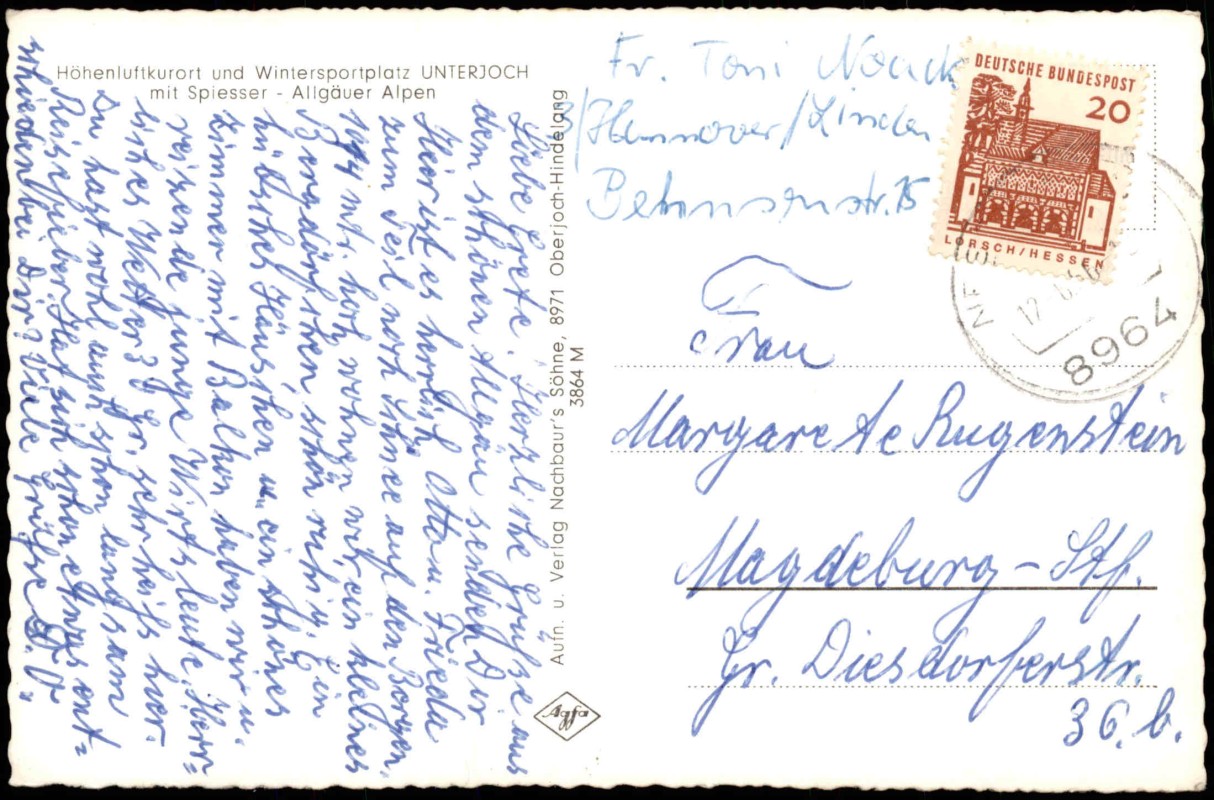 Höhenluftkurort und Wintersportplatz UNTERJOCH
mit Spiesser - Allgäuer Alpen
Liebe Grete. Herzliche Grüße aus
dem schönen Allgäu senden Dir
Hier ist es herrlich Otto u. Frieda
zum Teil noch Schnee auf den Bergen,
1014 mtr. hoch wohnen wir, ein kleines
Bergdörfchen schön ruhig. Ein
hübsches Häuschen u. ein schönes
Zimmer mit Balkon haben wir u.
reizende junge Wirtsleute. Herr=
liches Wetter
Gr. sehr heiß hier
Du hast wohl auch schon langsam
Reisefieber. Hat sich schon etwas ent=
schieden bei Dir? Viele Grüße
Aufn. u. Verlag Nachbaur's Söhne, 8971 Oberjoch-Hindelang
3864 M
Agfa
Fr. Toni Noack
3/Hannover/Linden
Behnsenstr. 15
DEUTSCHE BUNDESPOST
20
LORSCH/HESSEN
8964
Frau
Margarete Rugenstein
Magdeburg - Stf.
Gr. Diesdorferstr.
36. b.